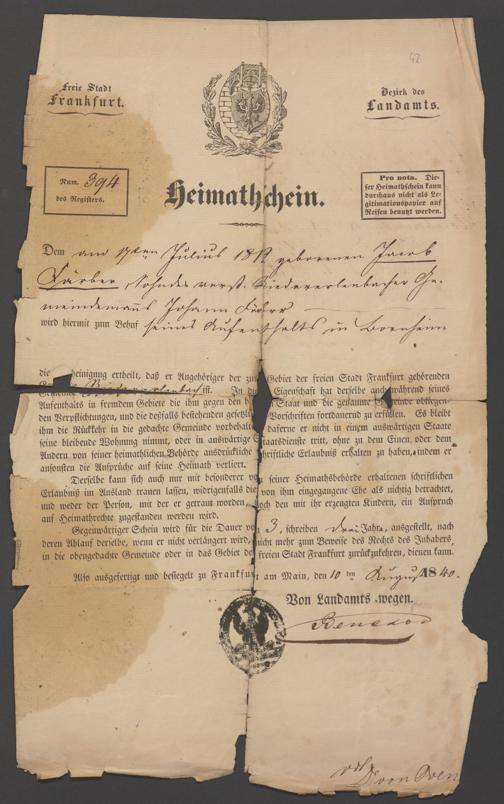 42
Freie Stadt
Frankfurt.
Bezirk des
Landamts.
Num. 394
des Registers.
Heimathschein.
Pro nota. Die-
ser Heimathschein kann
durchaus nicht als Le-
gitimationspapier auf
Reisen benutzt werden.
Dem am 17ten Julius 181 geborenen Jacob
Färber, Sohn des verst. Niedererlenbacher Ge-
meindemanns Johann Färber
wird hiermit zum Behuf seines Aufenthalts in Bornheim
die einigung ertheilt, daß er Angehöriger der zu Gebiet der freien Stadt Frankfurt gehörenden
Niedererlenbach ist. In di Eigenschaft hat derselbe auch während seines
Aufenthalts in fremdem Gebiete die ihm gegen den Staat und die gesammt einde obliegen-
den Verpflichtungen, und die deßfalls bestehenden gesetzli Vorschriften fortdauernd zu erfüllen. Es bleibt
ihm die Rückkehr in die gedachte Gemeinde vorbehalte daferne er nicht in einem auswärtigen Staate
seine bleibende Wohnung nimmt, oder in auswärtige Staatsdienste tritt, ohne zu dem Einen oder dem
Andern von seiner heimathlichen Behörde ausdrückliche schriftliche Erlaubniß erhalten zu haben, indem er
ansonsten die Ansprüche auf seine Heimath verliert.
Derselbe kann sich auch nur mit besonderer vo seiner Heimathsbehörde erhaltenen schriftlichen
Erlaubniß im Ausland trauen lassen, widrigenfalls die von ihm eingegangene Ehe als nichtig betrachtet,
und weder der Person, mit der er getraut worden, noch den mit ihr erzeugten Kindern, ein Anspruch
auf Heimathrechte zugestanden werden wird.
Gegenwärtiger Schein wird für die Dauer von 3, schreiben drei Jahre, ausgestellt, nach
deren Ablauf derselbe, wenn er nicht verlängert wird, nicht mehr zum Beweise des Rechts des Inhabers,
in die obengedachte Gemeinde oder in das Gebiet der freien Stadt Frankfurt zurückzukehren, dienen kann.
Also ausgefertigt und besiegelt zu Frankfurt am Main, den 10 ten August 1840.
Von Landamts wegen.